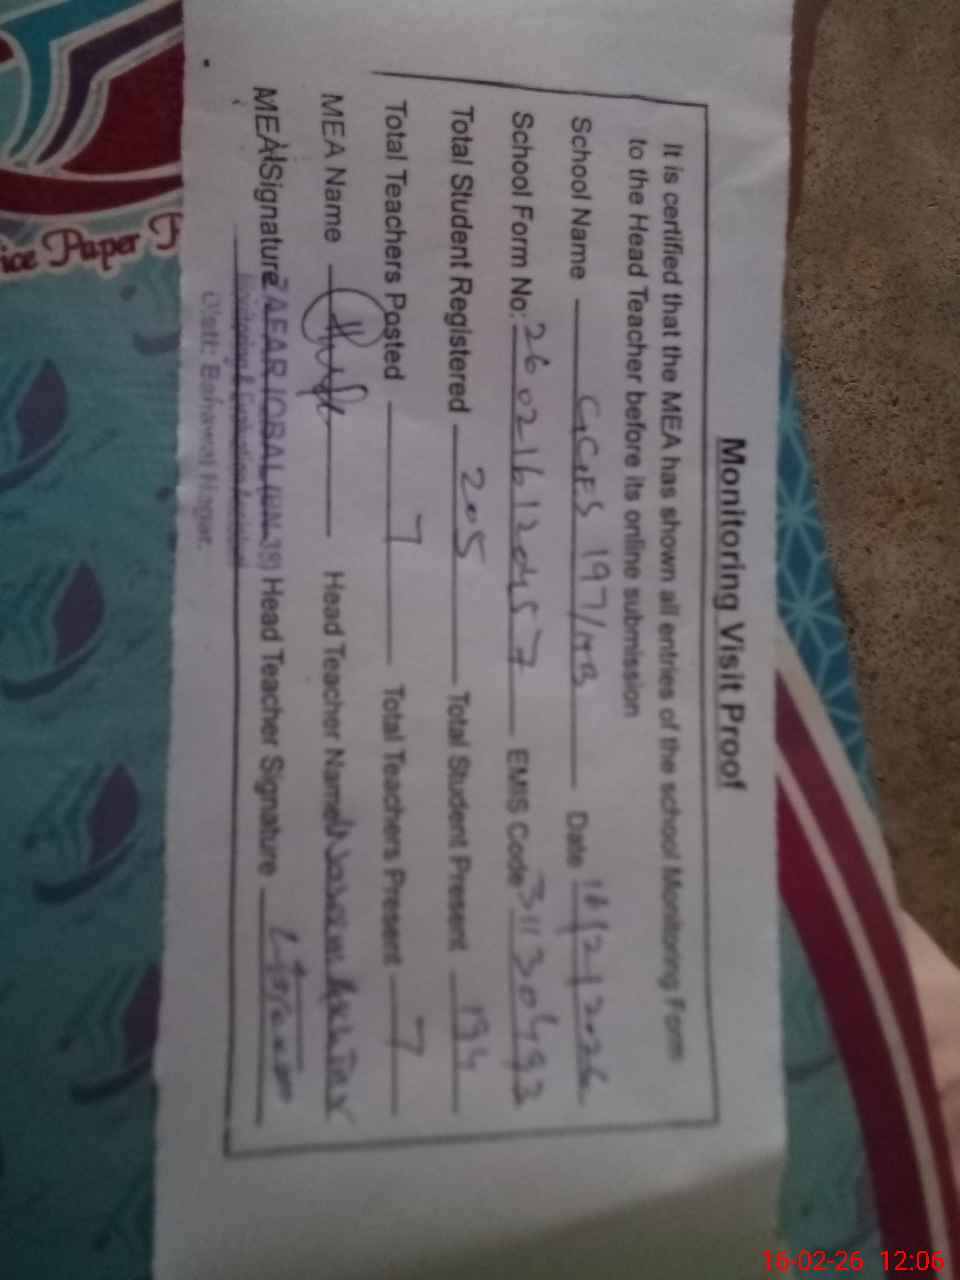 Monitoring Visit Proof
It is certified that the MEA has shown all entries of the school Monitoring Form
to the Head Teacher before its online submission
School Name GGES 197/HB Date 16/2/2026
School Form No: EMIS Code 31130493
Total Student Registered 205 Total Student Present 194
Total Teachers Posted 7 Total Teachers Present 7
MEA Name Head Teacher Name Akhtar
MEA Signature ZAFAR IQBAL Head Teacher Signature
Monitoring & Evaluation Assistant
Distt: Bahawal Nagar.
ice Paper
16-02-26 12:06